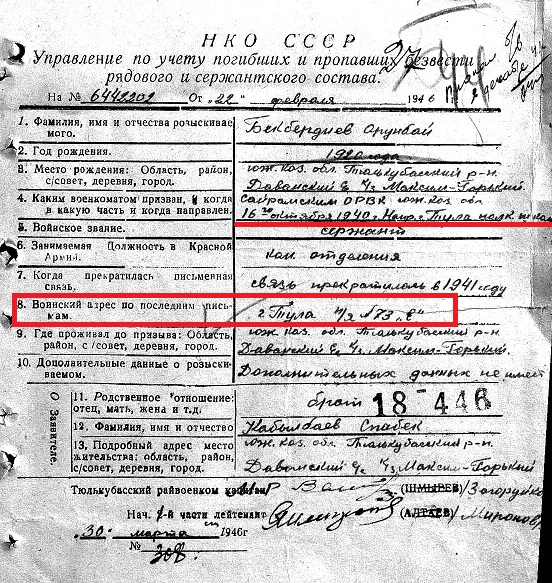 НКО СССР
Управление по учету погибших и пропавших безвести
рядового и сержантского состава.
На № 6442202 От „22“ февраля 1946
1. Фамилия, имя и отчества розыскиваемого. Бекбердиев Орунбай
2. Год рождения. 1920 года
3. Место рождения: Область, район, с/совет, деревня, город. юж. каз. обл. Тюлькубасский р-н. Даванский Максим-Горький.
4. Каким военкоматом призван, и когда в какую часть и когда направлен. Сайрамским ОРВК юж. каз. обл.
16го октября 1940 г. Напр. г. Тула полк
5. Войсковое звание. сержант
6. Занимаемая Должность в Красной Армии. ком отделения
7. Когда прекратилась письменная связь. связь прекратилась в 1941 году
8. Воинский адрес по последним письмам. г. Тула п/я №73 „Е“
9. Где проживал до призыва: Область, район, с/совет, деревня, город. юж. каз. обл. Тюлькубасский р-н. Даванский Максим-Горький.
10. Дополнительные данные о розыскиваемом. Дополнительных данных не имеет
О Заявителе
11. Родственное отношение: отец, мать, жена и т.д. брат
18-446
12. Фамилия, имя и отчество Кабылбаев Спабек
13. Подробный адрес место жительства: область, район, с/совет, деревня, город. юж. каз. обл. Тюлькубасский р-н. Даванский Максим-Горький
Тюлькубасский райвоенком (ШМЫРЕВ) Загоруйко
Нач. 1-й части лейтенант (АЛТАЕВ) Миронов
„30“ марта 1946г
№ 308.